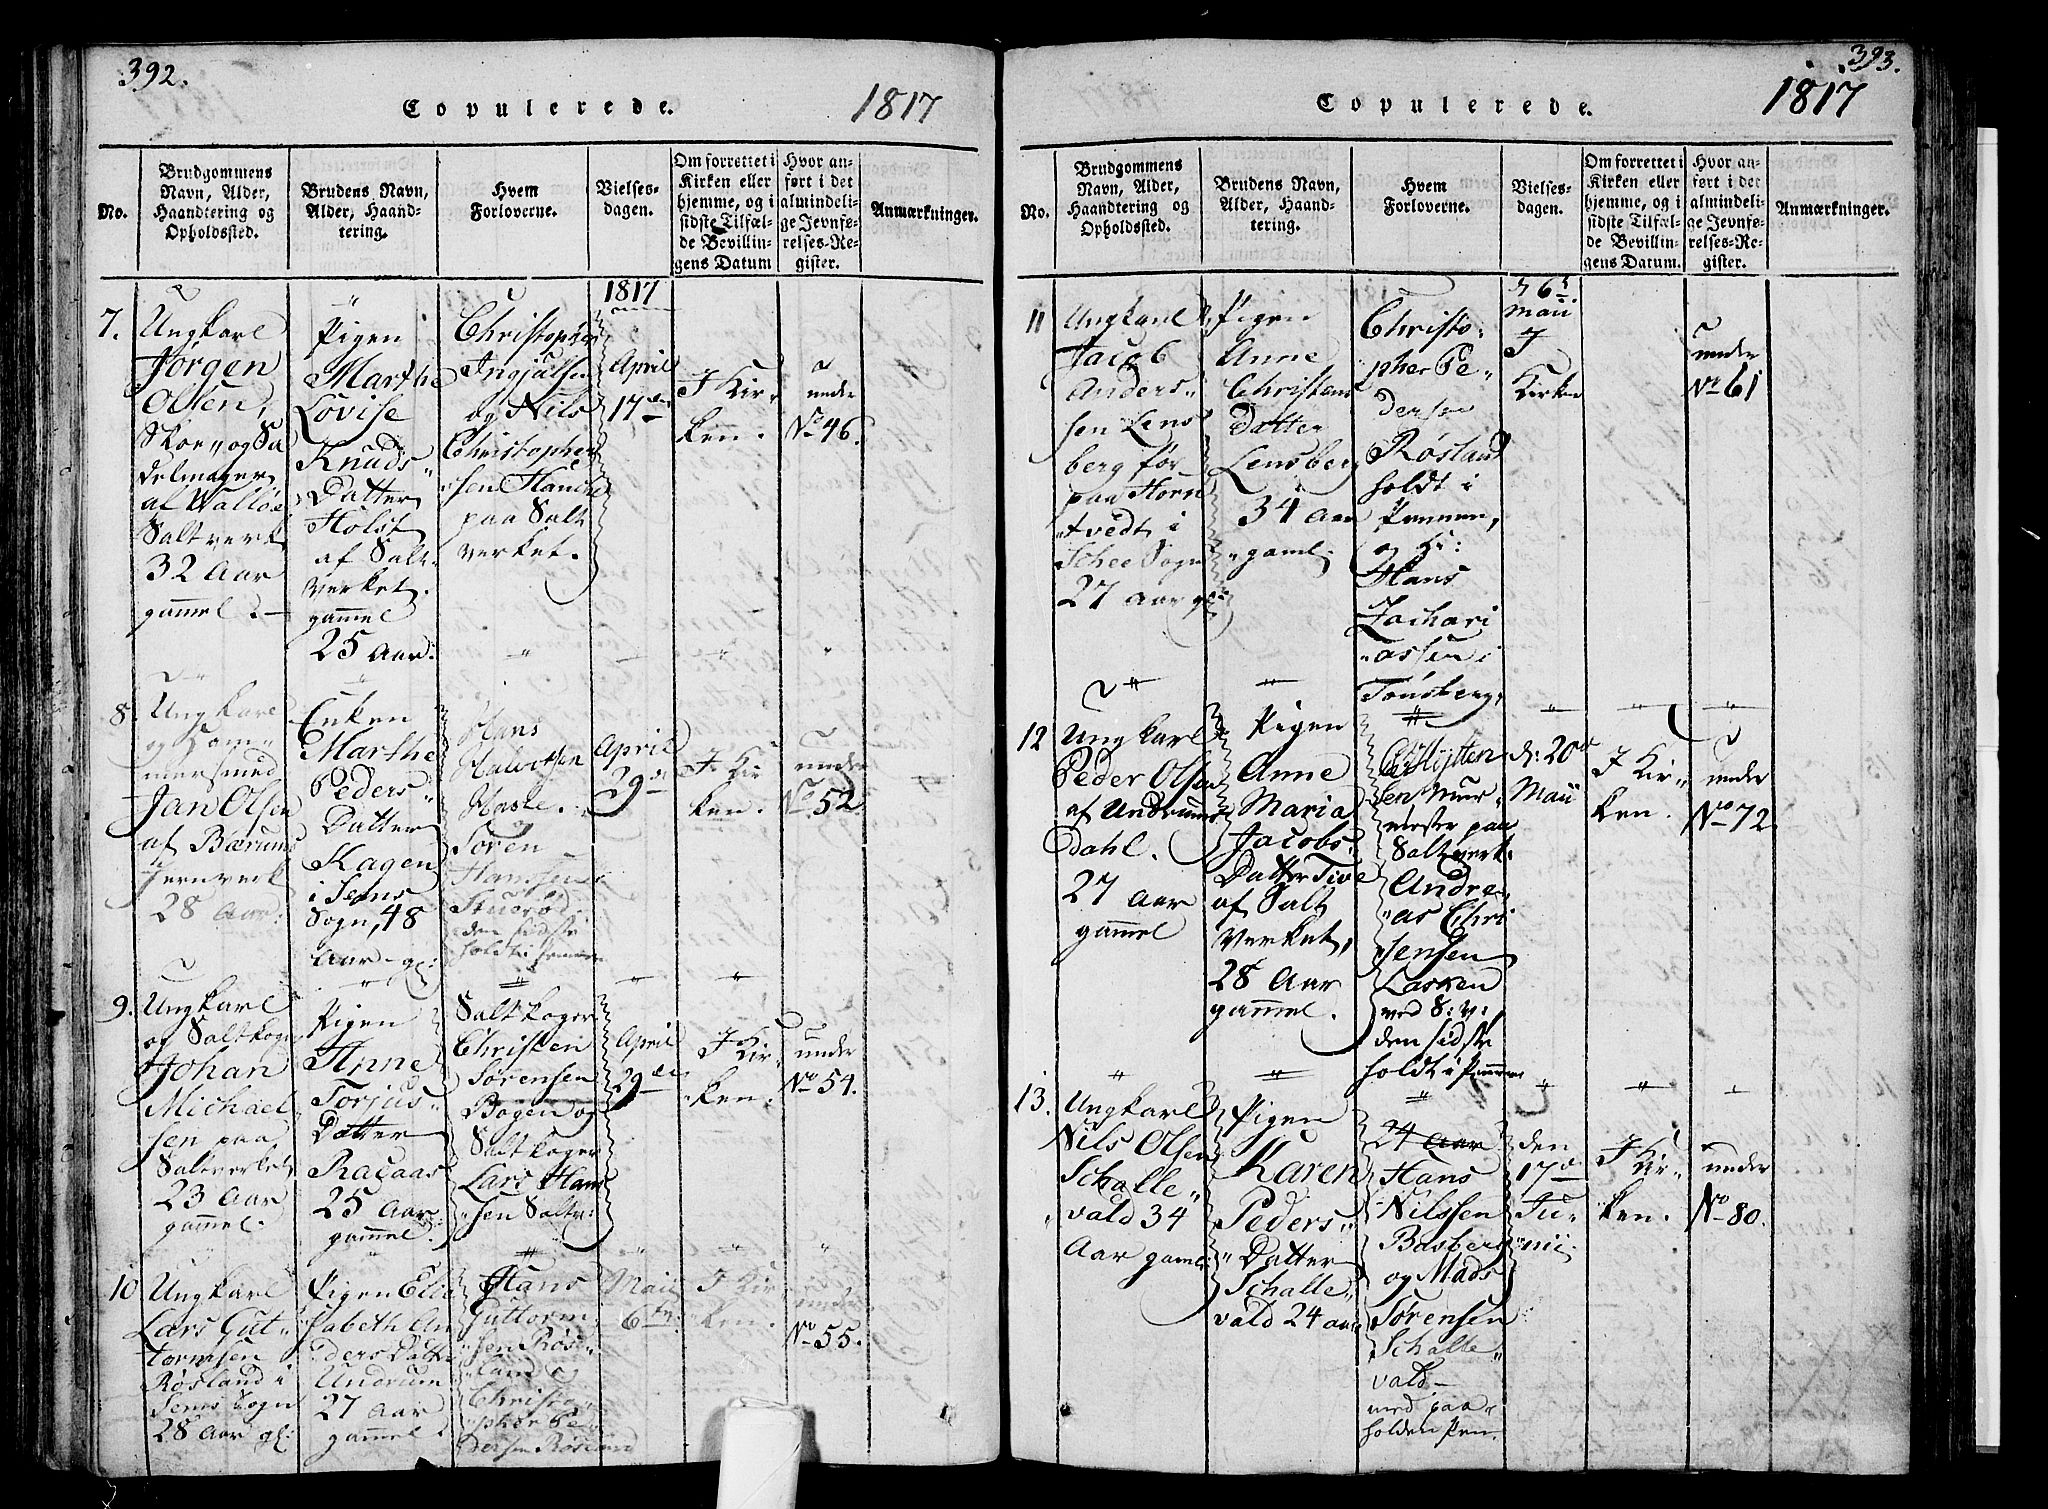 392.
Copulerede.
1817
No.
Brudgommens
Navn, Alder,
Haandtering og
Opholdssted.
Brudens Navn,
Alder, Haand-
tering.
Hvem
Forloverne.
Vielses-
dagen.
Om forrettet i
Kirken eller
hjemme, og i
sidste Tilfæl-
de Bevillin-
gens Datum
Hvor an-
ført i det
almindeli-
ge Jevnfø-
relses-Re-
gister.
Anmærkninger.
7.
Ungkarl
Jörgen
Olsen,
Skoe„ og Sa
delmager
af Walløe
Saltverk
32 Aar
gammel
Pigen
Marthe
Lovise
Knuds„
Datter
Holst
af Salt„
verket.
gammel
25 Aar:
Christopher
Ingjulsen
og Nils
Christopher
sen
paa Salt
verket.
1817
April
17de
I Kir„
ken.
under
No 46.
8.
Ungkarl
og Ham„
mersmed
Jan Olsen
af Bærums
Jernverk
28 Aar:
Enken
Marthe
Peders„
Datter
Hagen
i Sems
Sogn, 48
Aar gl:
Hans
Halvorsen
Hasle.
Søren
Hanssen
den sidste
holdt i
April
29de
I Kir
ken.
under
No 52.
9.
Ungkarl
og Saltkoger
Johan
Michael
sen paa
Saltverket
23 Aar
gammel.
Pigen
Anne
Torjus„
Datter
Racaas
25 Aar
gammel.
Saltkoger
Christen
Sørensen
Bogen og
Saltkoger
Lars Hans
„sen Saltv:
April
29de
I Kir
„ken.
under
No 54.
10
Ungkarl
Lars Gut„
tormsen
Røsland i
Sems Sogn
28 Aar gl:
Pigen Elli
sabeth An
ders Datter
Undrum
27 Aar
gammel.
Hans
Guttorm„
„sen Røs„
land og
Christo„
pher Pe„
dersen Røsland
Maii
6te
I Kir
ken.
under
No 55.
393.
Copulerede.
1817
No.
Brudgommens
Navn, Alder,
Haandtering og
Opholdssted.
Brudens Navn,
Alder, Haand-
tering.
Hvem
Forloverne.
Vielses-
dagen.
Om forrettet i
Kirken eller
hjemme, og i
sidste Tilfæl-
de Bevillin-
gens Datum.
Hvor an-
ført i det
almindeli-
ge Jevnfø-
relses-Re-
gister.
Anmærkninger.
11
Ungkarl
Jacob
Anders„
sen Lens
berg før
paa Horn
„tvedt i
Schee Sogn
27 Aar gl:
Pigen
Anne
Christens
Datter
Lensberg
34 Aar
„gaml.
Christo„
pher Pe„
dersen
Røsland
holdt i
Pennen,
og Hr:
Hans
Zachari
„assen i
Tønsberg.
Maii
I
Kirken
under
No 61
12
Ungkarl
Peder Olsen
af Undrums
Dahl.
27 Aar
gammel
Pigen
Anne
Maria
Jacobs„
Datter Tive
af Salt
Verket,
28 Aar
gammel.
sen Muur„
mester paa
Saltverk:
Andre„
„as Chri
„stensen
Lasken
ved S: v:
den sidste
holdt i Pennen
d: 20de
Maii
I Kir„
ken.
under
No 72
13.
Ungkarl
Nils Olsen
Schalle„
„vald 34
Aar gaml:
Pigen
Karen
Peders„
„Datter
Schalle„
vald 24 aar
24 Aar
Hans
Nilssen
Basberg
og Mads
Sørensen
Schalle„
vald
med paa„
holden Pen.
den
17de
Ju„
„nii.
I Kir„
ken.
under
No 80.